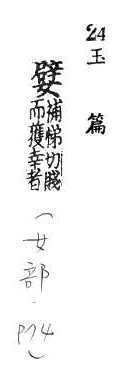 24
玉篇
嬖補悌切賤
而獲幸者
(女部·P74)